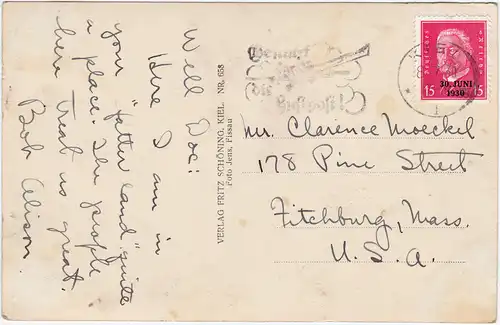 Well Doc:
Here I am in
your "fatter land" quite
a place. The people
here treat us great.
Bob Alison.
VERLAG FRITZ SCHÖNING, KIEL. NR. 658
Foto Jens, Pissau
Benutzt
die
Luftpost!
Deutsches Reich
30. JUNI
1930
15 15
Mr. Clarence Moeckel
178 Pine Street
Fitchburg, Mass.
U.S.A.